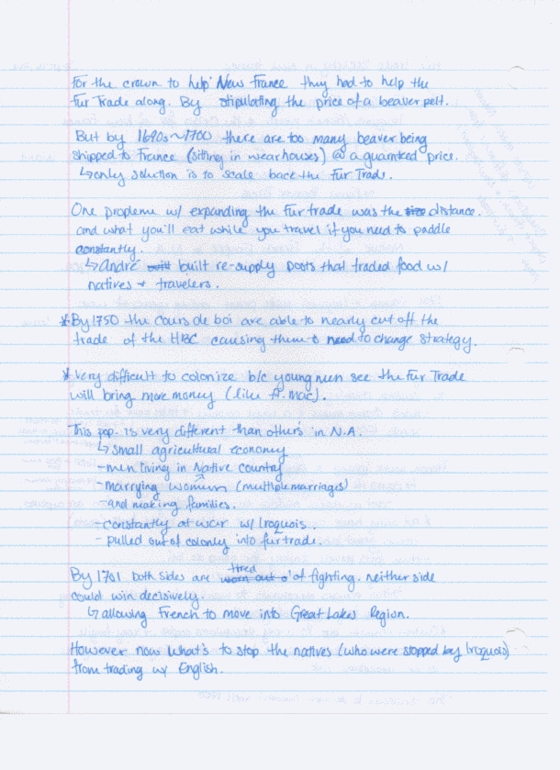 For the crown to help New France they had to help the
Fur Trade along. By stipulating the price of a beaver pelt.
But by 1690s~1700 there are too many beaver being
shipped to France (sitting in wearhouses) @ a guaranteed price.
↳only solution is to scale back the Fur Trade.
One propleme w/ expanding the Fur trade was the distance.
and what you'll eat while you travel if you need to paddle
constantly.
↳Andre built re-supply posts that traded food w/
natives + travelers.
*By 1750 the cours de boi are able to nearly cut off the
trade of the HBC causing them to need to change strategy.
* Very difficult to colonize b/c young men see the Fur Trade
will bring more money (like ft. Mac).
This pop. is very different than others in N.A.
↳small agricultural economy
-men living in Native country
-marrying women (multiple marriages)
-and making families.
-constantly at war w/ Iroquois.
-pulled out of colony into fur trade.
By 1701 both sides are tired of fighting. neither side
could win decisively.
↳allowing French to move into Great Lakes Region.
However now what's to stop the natives (who were stopped by Iroquois)
from trading w/ English.